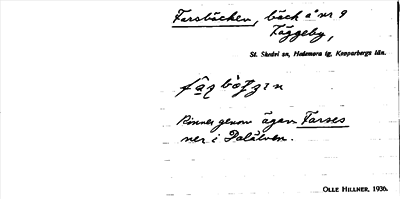 Farsbäcken, bäck å nr 9
Täggeby,
St. Skedvi sn, Hedemora tg, Kopparbergs län.
Rinner genom ägan Farses
ner i Dalälven.
OLLE HILLNER, 1936.